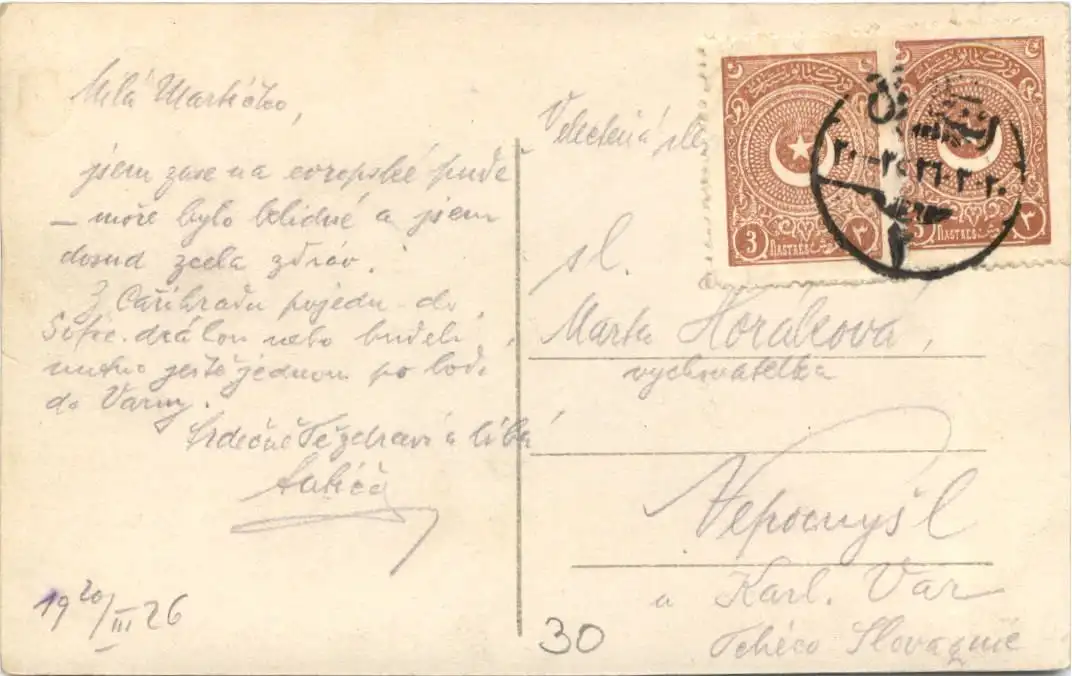 Milá Martičko,
jsem zase na evropské půdě
– moře bylo klidné a jsem
dosud zcela zdráv.
Z Cařihradu pojedu do
Sofie drahou nebo bude-li
nutno ještě jednou po lodi
do Varny.
Srdečně Tě zdraví a líbá
19 20/III 26
Velectěná
sl.
Marta Horáková,
vychovatelka
Nepomyšl
u Karl. Var
Tchéco Slovaquie
30
3 PIASTRES ٣
PIASTRES ٣